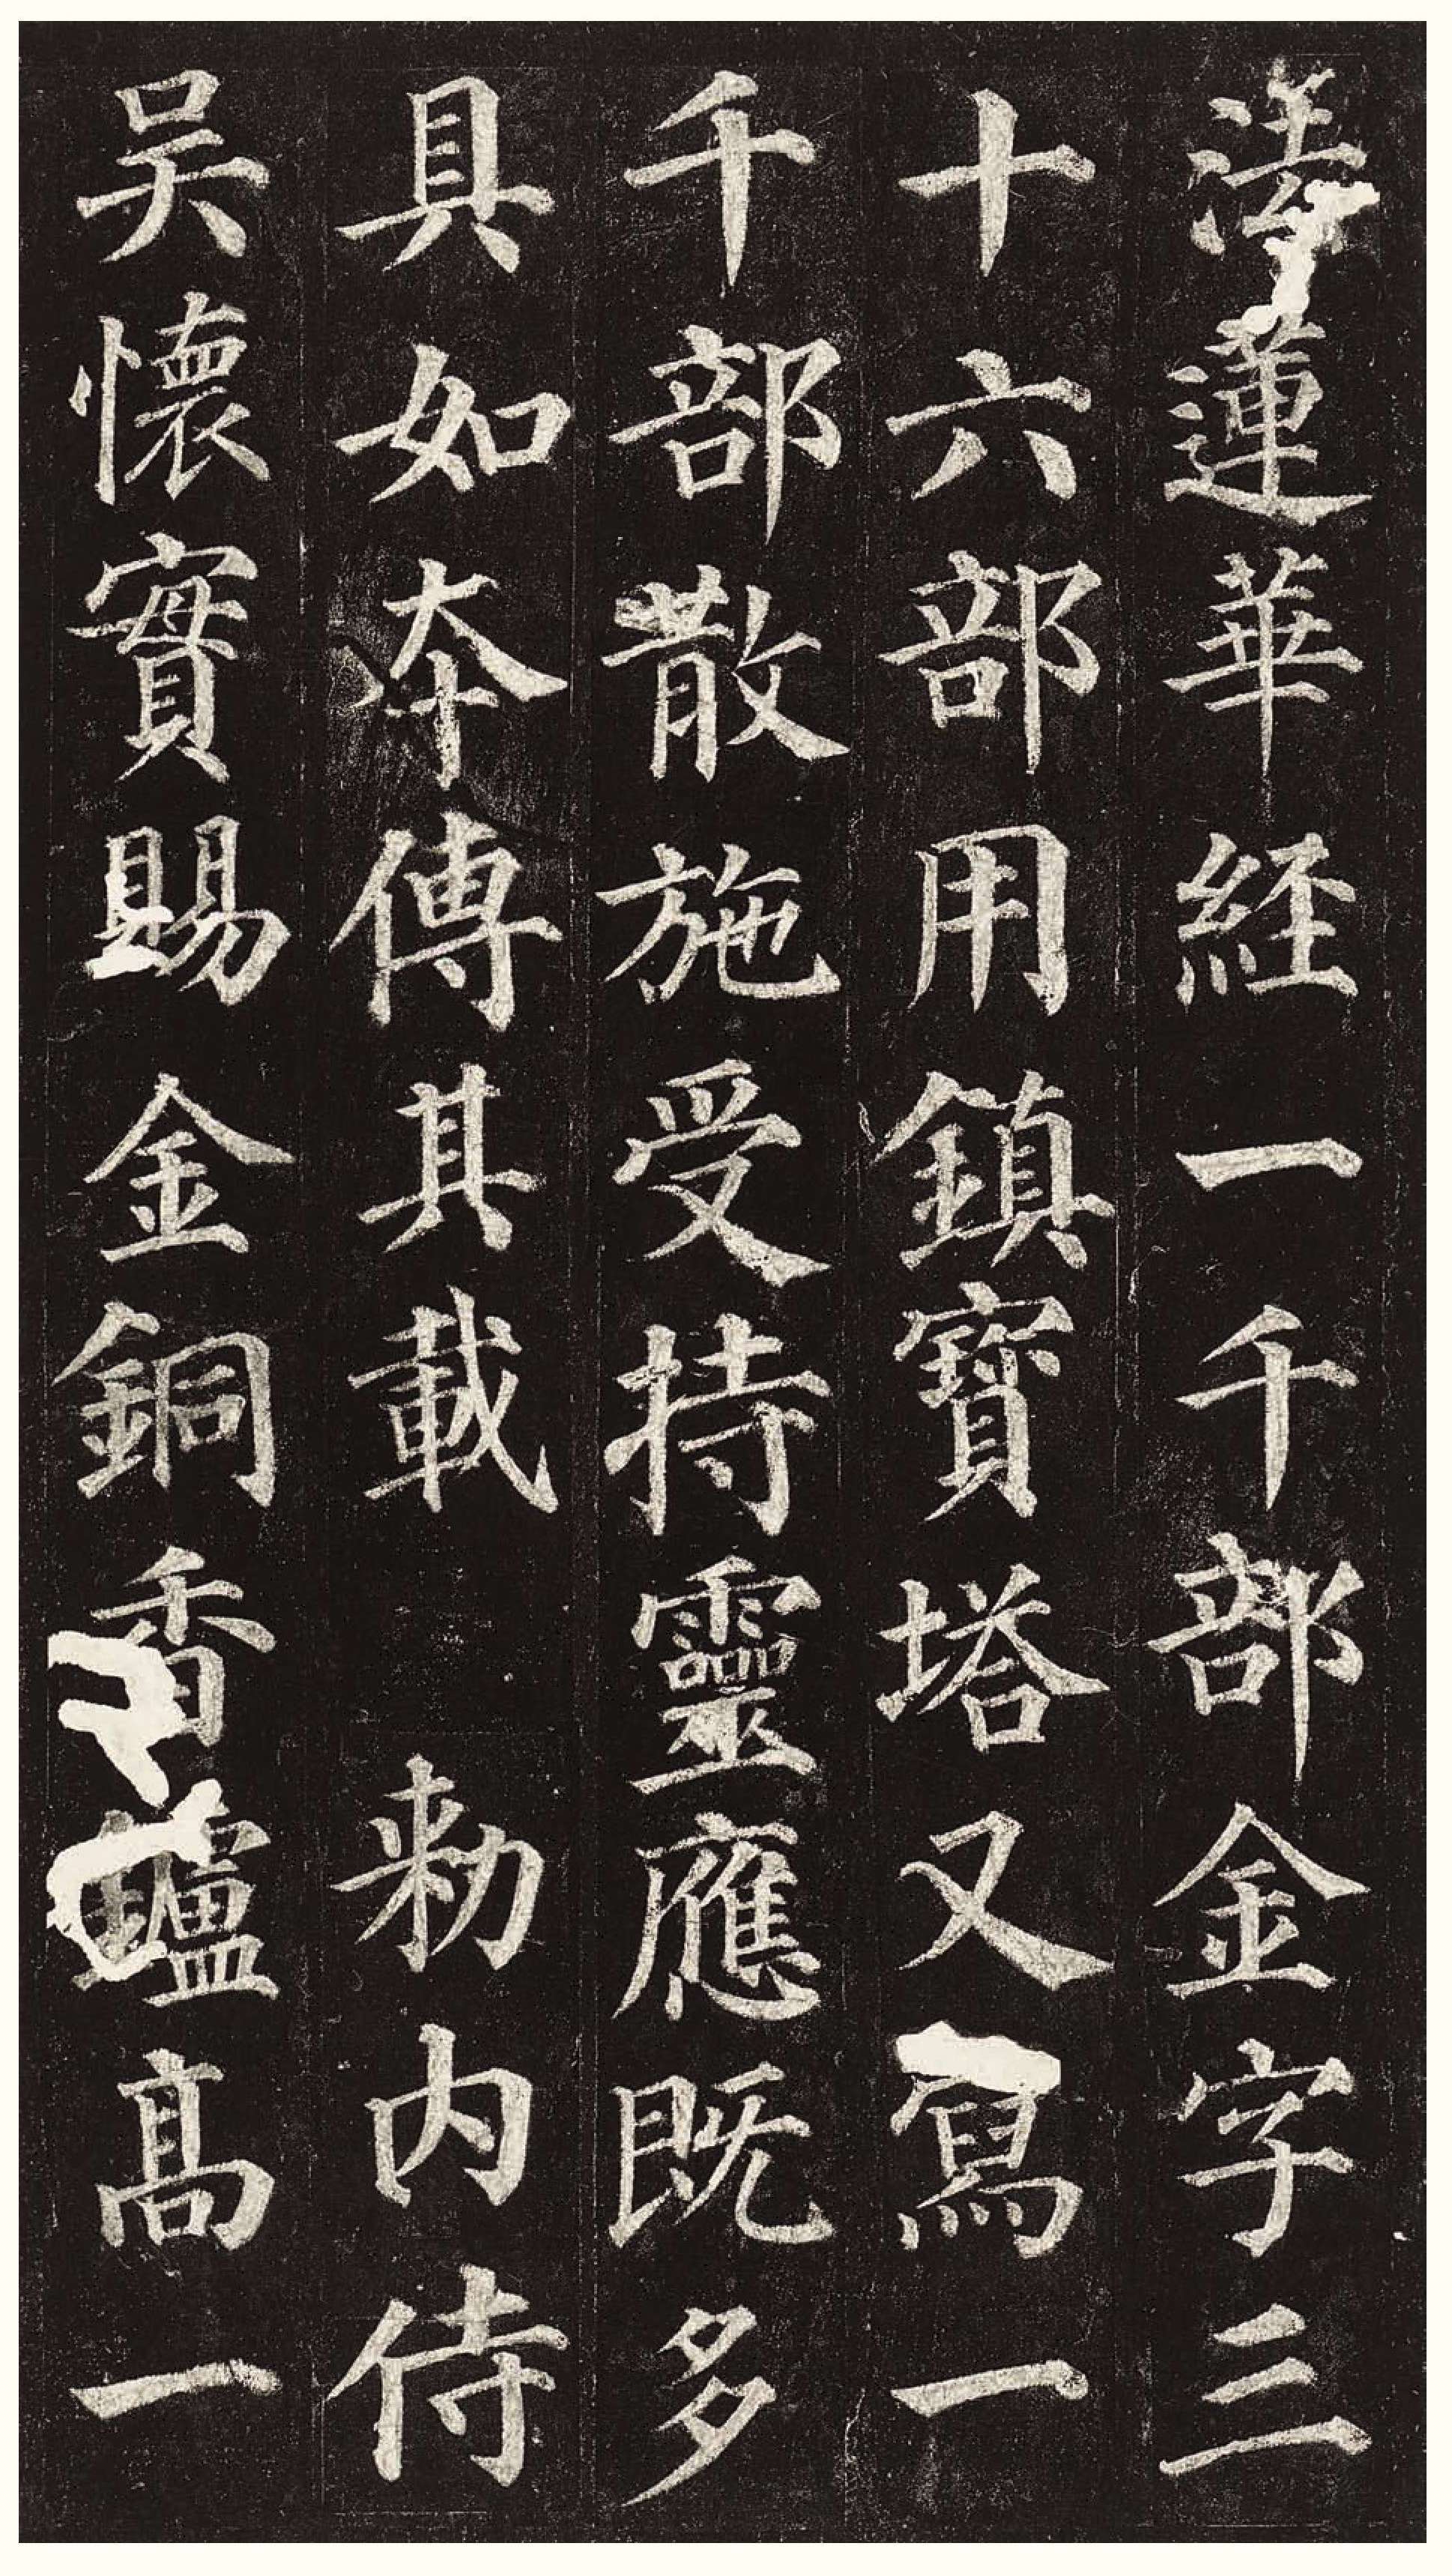 法蓮華経一千部金字三
十六部用鎮寶塔又寫一
千部散施受持靈應既多
具如本傳其載 敕內侍
吳懷實賜金銅香鑪高一